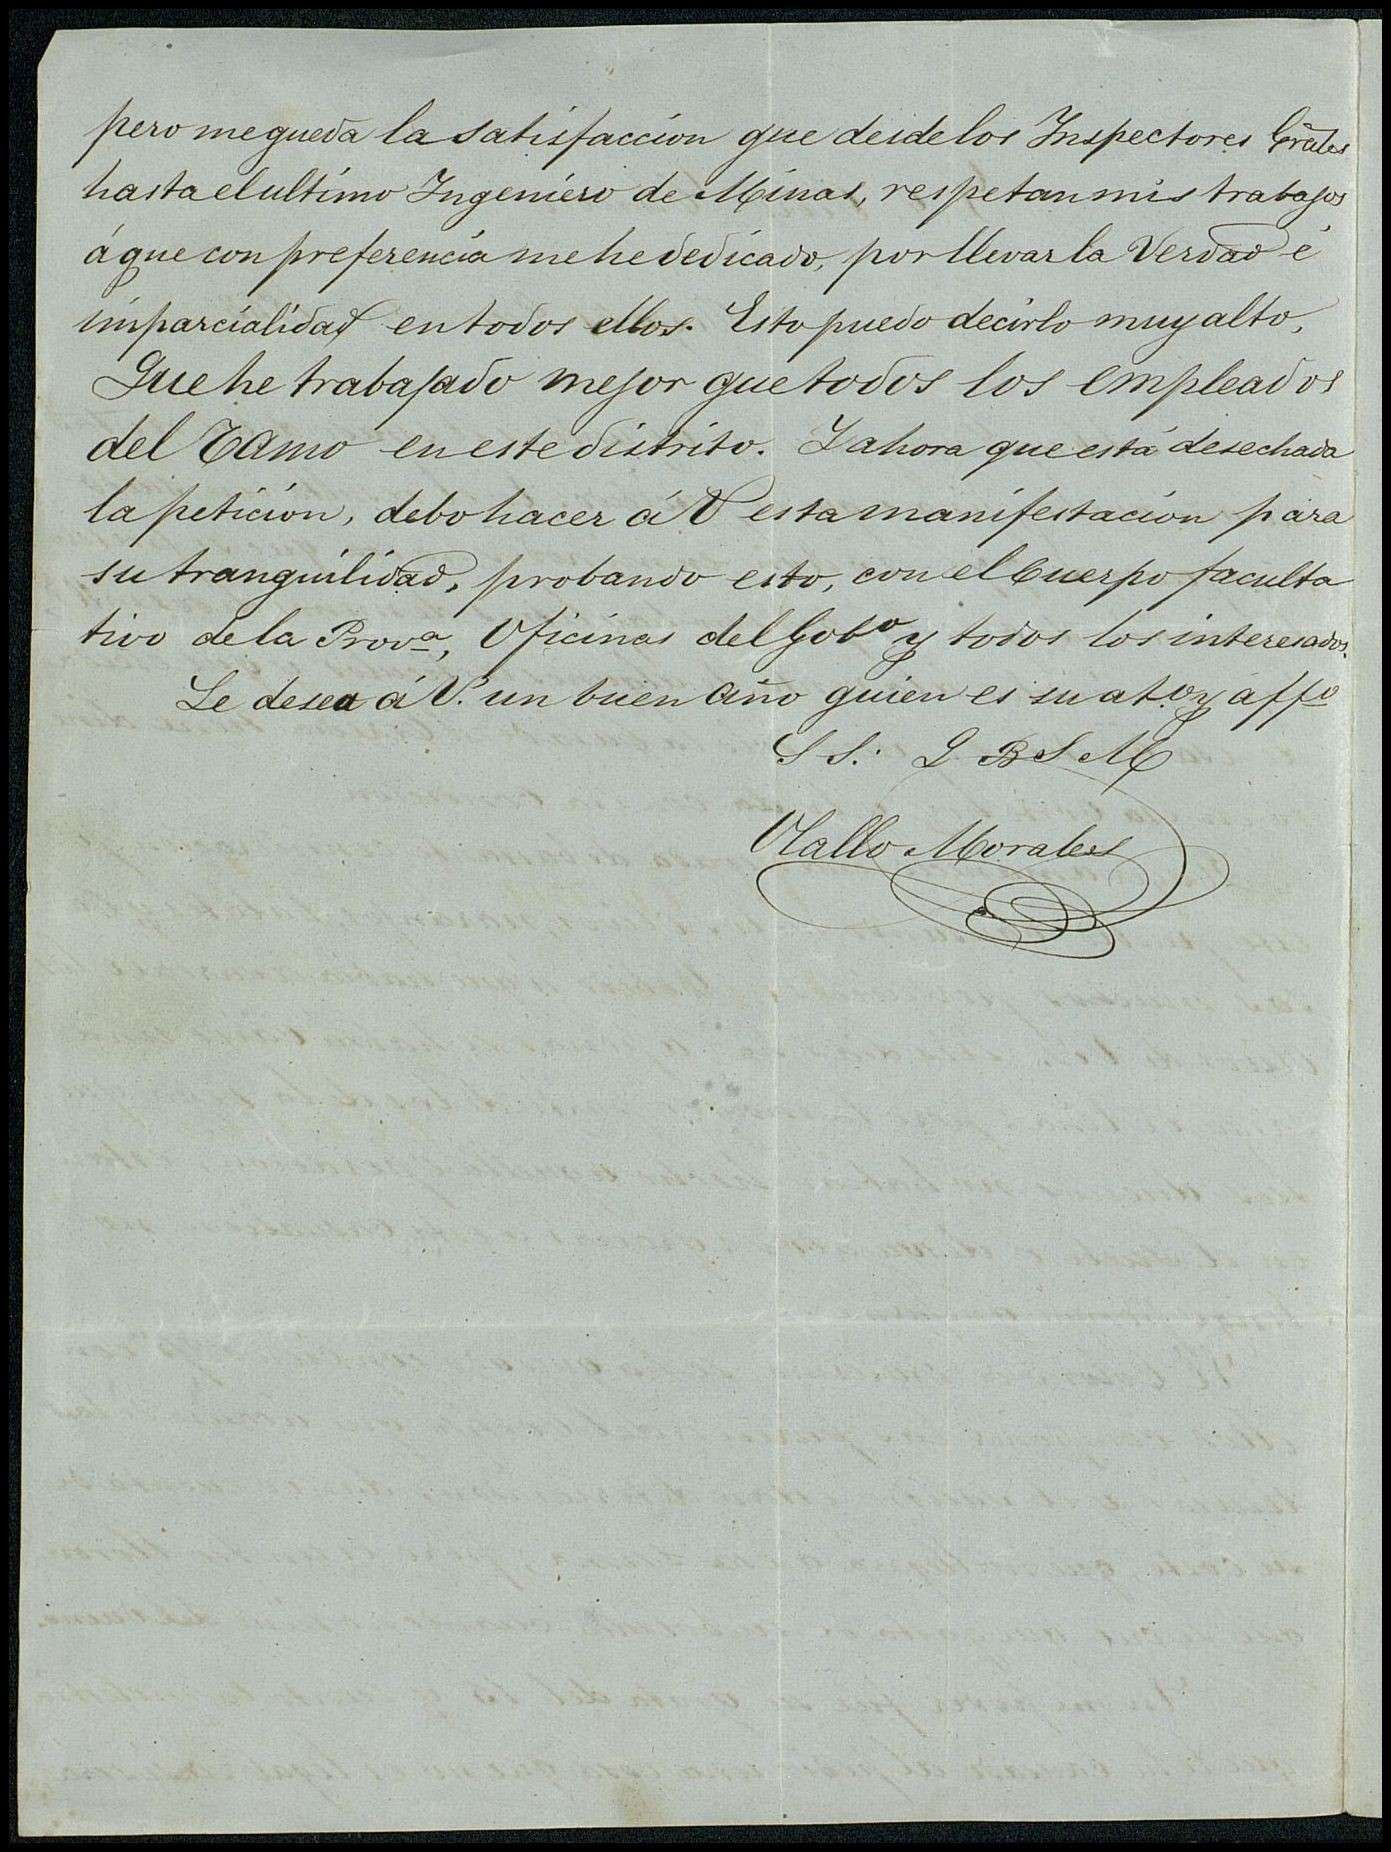 pero me queda la satisfaccion que desde los Inspectores Grales
hasta el ultimo Ingeniero de Minas, respetan mis trabajos
á que con preferencia me he dedicado, por llevar la Verdad é
imparcialidad en todos ellos. Esto puedo decirlo muy alto,
Que he trabajado mejor que todos los empleados
del Ramo en este distrito. Y ahora que está desechada
la peticion, debo hacer á V esta manifestacion para
su tranquilidad, probando esto, con el Cuerpo faculta
tivo de la Prova, Oficinas del Gobo y todos los interesados.
Le desea á V. un buen año quien es su at.o y affo
S S. Q B S M
Olallo Morales